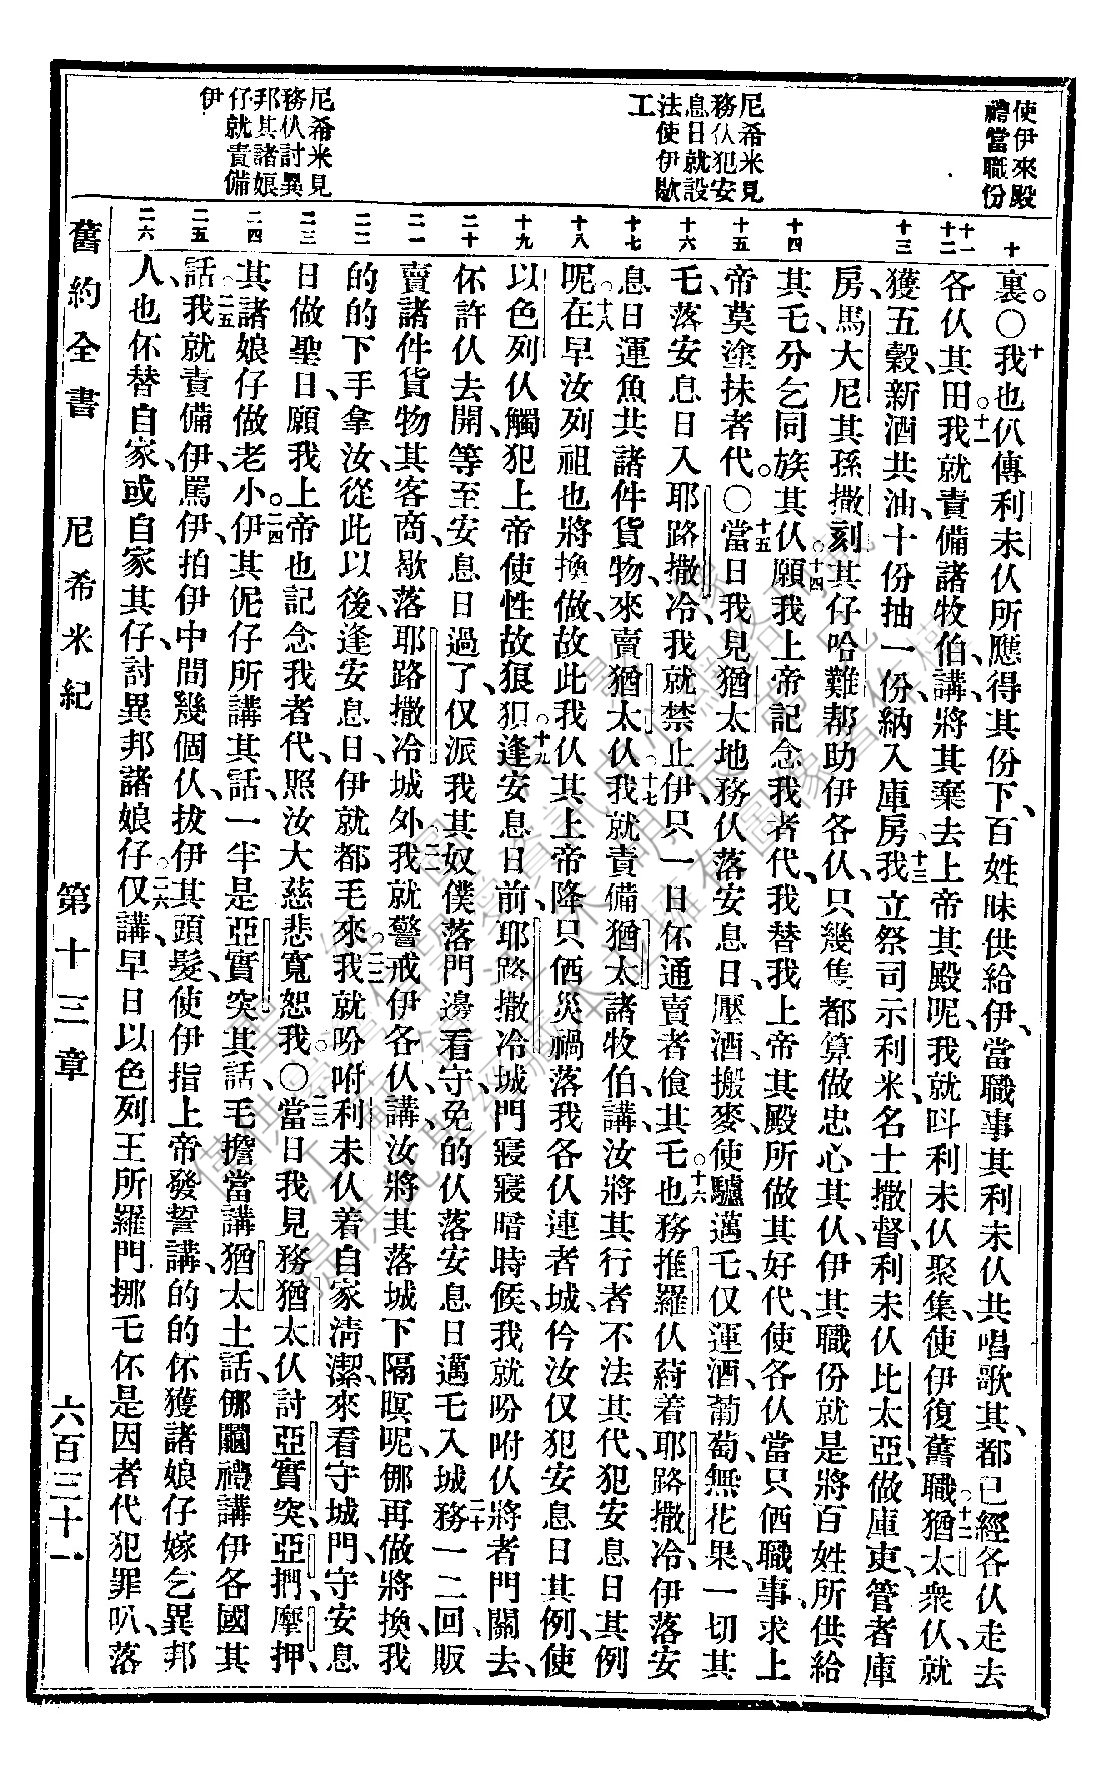 使伊來殿
禮當職份
尼希米見
務仈犯安
息日就設
法使伊歇
工
尼希米見
務仈討異
邦其諸娘
仔就責備
伊
十
十一
十二
十三
十四
十五
十六
十七
十八
十九
二十
二一
二二
二三
二四
二五
二六
裏。〇十我也仈傳利未仈所應得其份下、百姓昧供給伊、當職事其利未仈共唱歌其、都已經各仈走去
各仈其田。十一我就責備諸牧伯、講、將其棄去上帝其殿呢、我就呌利未仈聚集、使伊復舊職。十二猶太衆仈、就
獲五穀新酒共油十份抽一份納入庫房。十三我立祭司示利米名士撒督利未仈比太亞、做庫吏、管者庫
房、馬大尼其孫撒刻其仔哈難帮助伊各仈、只幾隻都算做忠心其仈、伊其職份就是將百姓所供給
其乇、分乞同族其仈。十四願我上帝記念我者代、我替我上帝其殿所做其好代、使各仈當只俩職事、求上
帝莫塗抹者代。〇十五當日我見猶太地務仈落安息日、壓酒、搬麥、使驢邁乇、仅運酒葡萄無花果、一切其
乇、落安息日入耶路撒冷、我就禁止伊、只一日伓通賣者食其乇。十六也務推羅仈䔿着耶路撒冷、伊落安
息日運魚共諸件貨物、來賣猶太仈。十七我就責備猶太諸牧伯、講、汝將其行者不法其代、犯安息日其例
呢。十八在早汝列祖也將換做、故此我仈其上帝降只俩災禍落我各仈連者城、仱汝仅犯安息日其例、使
以色列仈觸犯上帝使性故狠狽。十九逢安息日前、耶路撒冷城門寢寢暗時候、我就吩咐仈將者門關去、
伓許仈去開、等至安息日過了、仅派我其奴僕落門邊看守、免的仈落安息日邁乇入城。二十務一二回、販
賣諸件貨物、其客商、歇落耶路撒冷城外。二一我就警戒伊各仈、講、汝將其落城下隔暝呢、倻再做將換、我
的的下手拿汝、從此以後、逢安息日、伊就都毛來。二二我就吩咐利未仈着自家淸潔、來看守城門、守安息
日做聖日、願我上帝也記念我者代、照汝大慈悲寬恕我。〇二三當日我見務猶太仈討亞實突、亞捫、摩押、
其諸娘仔做老小。二四伊其伲仔所講其話、一半是亞實突其話、毛擔當講猶太土話、倻𡅏禮講伊各國其
話。二五我就責備伊、罵伊、拍伊中間幾個仈、拔伊其頭髮、使伊指上帝發誓、講、的的伓獲諸娘仔嫁乞異邦
人、也伓替自家、或自家其仔、討異邦諸娘仔。二六仅講、早日以色列王所羅門挪乇伓是因者代犯罪叭、落
舊約全書 尼希米紀 第十三章 六百三十一